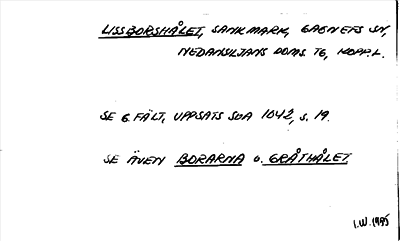 LISSBORSHÅLET, SANKMARK, GAGNEFS SN,
NEDANSILJANS DOMS. TG, KOPP. L.
SE G. FÄLT, UPPSATS SOA 1042, S. 19.
SE ÄVEN BORARNA O. GRÅTHÅLET.
I.W. 1985